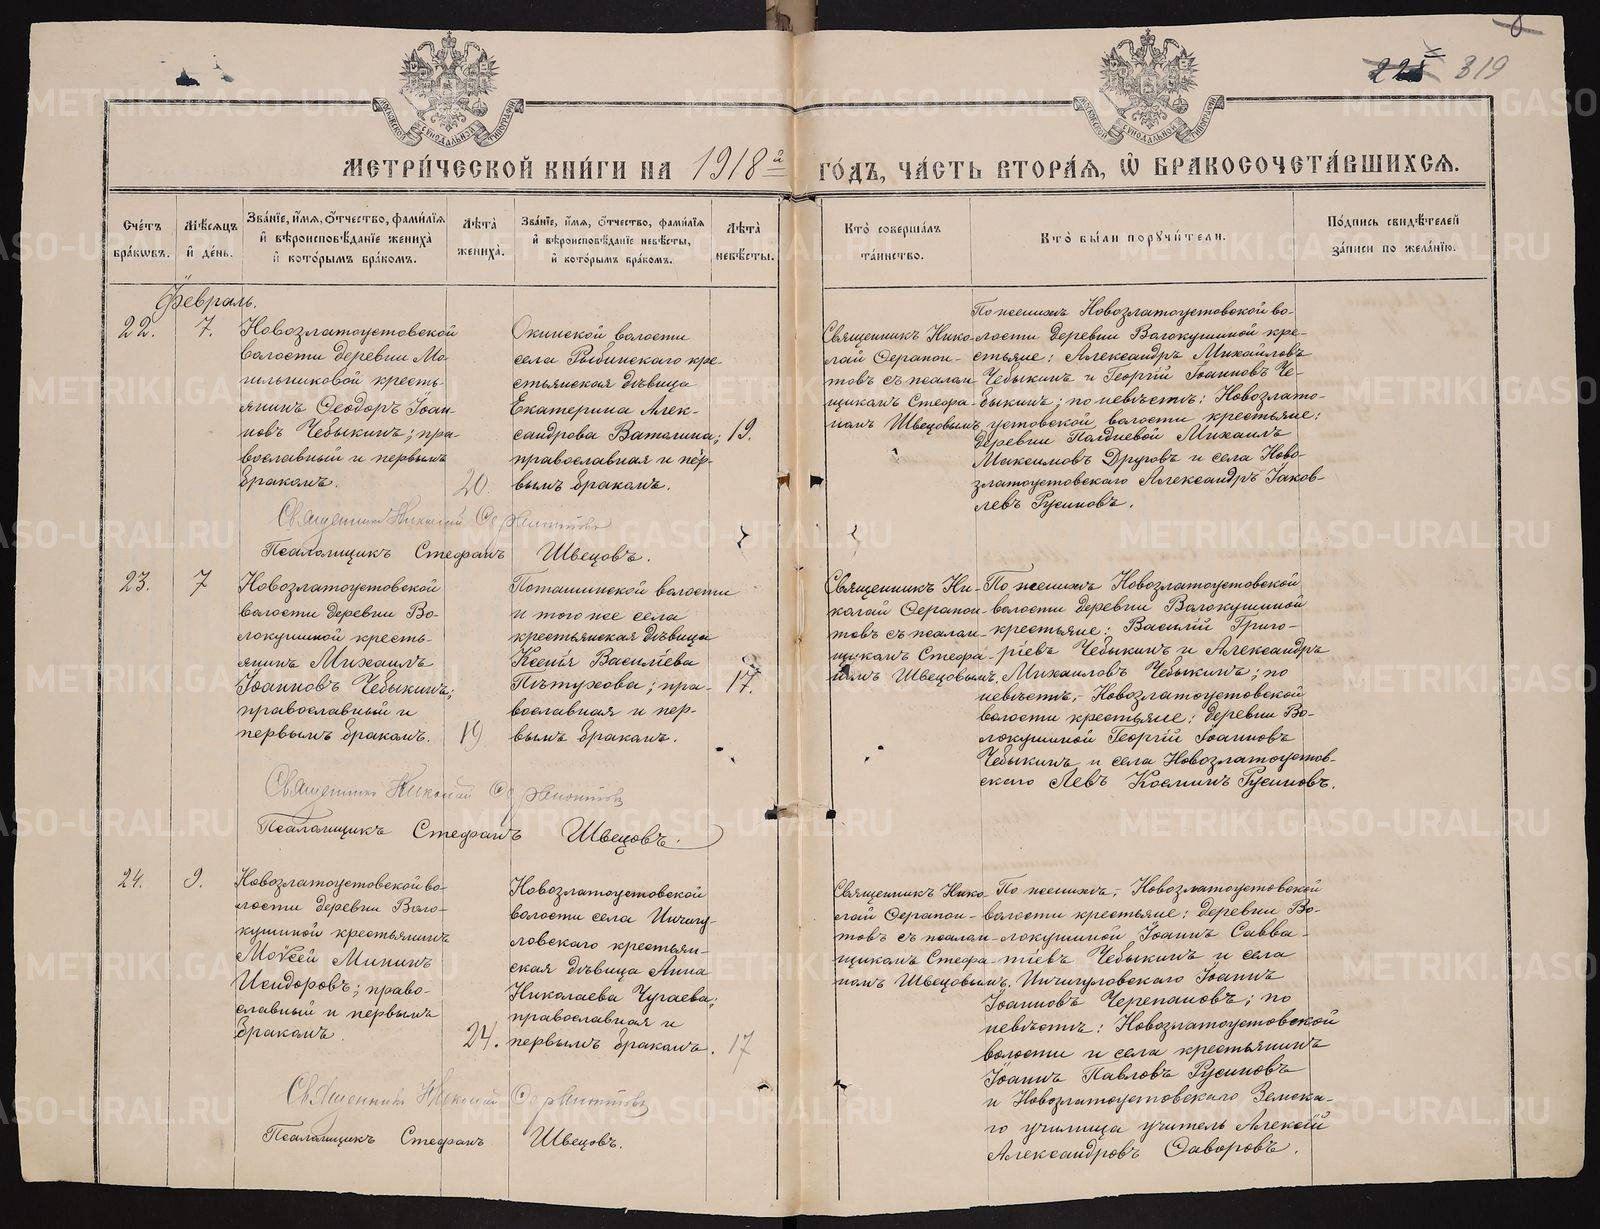 228 319
МОСКОВСКОЙ СѴНОДАЛЬНОЙ ТИПОГРАФІИ
МОСКОВСКОЙ СѴНОДАЛЬНОЙ ТИПОГРАФІИ
МЕТРИ́ЧЕСКОЙ КНИ́ГИ НА 1918й ГО́ДЪ, ЧА́СТЬ ВТОРА́Я, Ѽ БРАКОСОЧЕТА́ВШИХСЯ.
Сче́тъ бра́ковъ.
Мѣ́сяцъ и де́нь.
Зва́ніе, и́мя, о́тчество, фами́лія и вѣроисповѣ́даніе жениха̀ и кото́рымъ бра́комъ.
Лѣ́та жениха̀.
Зва́ніе, и́мя, о́тчество, фами́лія и вѣроисповѣ́даніе невѣ́сты, и кото́рымъ бра́комъ.
Лѣ́та невѣ́сты.
Кто̀ соверша́лъ та́инство.
Кто̀ бы́ли поручи́тели.
По́дпись свидѣ́телей за́писи по жела́нію.
Февраль.
22. 7.
Новозлатоустовской
волости деревни Ме-
нильниковой кресть-
янинъ Ѳеодоръ Іоан-
новъ Чебыкинъ; пра-
вославный и первымъ
бракомъ.
20.
Окинской волости
села Рыбинскаго кре-
стьянская дѣвица
Екатерина Алек-
сандрова Ватолина;
православная и пер-
вымъ бракомъ.
19.
Священникъ Нико-
лай Серапіон-
товъ съ псалом-
щикомъ Стефа-
номъ Швецовымъ
По женихѣ Новозлатоустовской во-
лости деревни Волокушиной кре-
стьяне: Александръ Михайловъ
Чебыкинъ и Георгій Іоанновъ Че-
быкинъ; по невѣстѣ: Новозлато-
устовской волости крестьяне:
деревни Михаилъ
Максимовъ Друговъ и села Ново-
златоустовскаго Александръ Іаков-
левъ Русиновъ.
Священникъ Николай
Псаломщикъ Стефанъ Швецовъ.
23. 7
Новозлатоустовской
волости деревни Во-
локушиной кресть-
янинъ Михаилъ
Іоанновъ Чебыкинъ;
православный и
первымъ бракомъ.
19
Поташинской волости
и того же села
крестьянская дѣвица
Ксенія Василіева
Пѣтухова; пра-
вославная и пер-
вымъ бракомъ.
17.
Священникъ Ни-
колай Серапіон-
товъ съ псалом-
щикомъ Стефа-
номъ Швецовымъ,
По женихѣ Новозлатоустовской
волости деревни Волокушиной
крестьяне: Василій Григо-
ріевъ Чебыкинъ и Александръ
Михаиловъ Чебыкинъ; по
невѣстѣ, - Новозлатоустовской
волости крестьяне: деревни Во-
локушиной Георгій Іоанновъ
Чебыкинъ и села Новозлатоустов-
скаго Левъ Косминъ Русиновъ.
Священникъ Николай
Псаломщикъ Стефанъ Швецовъ.
24. 9.
Новозлатоустовской во-
лости деревни Воло-
кушиной крестьянинъ
Моѵсей Мининъ
Исидоровъ; право-
славный и первымъ
бракомъ.
24.
Новозлатоустовской
волости села Ничигу-
ловскаго крестьян-
ская дѣвица Анна
Николаева Чугаева;
православная и
первымъ бракомъ.
17
Священникъ Нико-
лай Серапіон-
товъ съ псалом-
щикомъ Стефа-
номъ Швецовымъ.
По женихѣ, - Новозлатоустовской
волости крестьяне: деревни Во-
локушиной Іоаннъ Савва-
тіевъ Чебыкинъ и села
Ничигуловскаго Іоаннъ
Іоанновъ Черепановъ; по
невѣстѣ: Новозлатоустовской
волости и села крестьянинъ
Іоаннъ Павловъ Русиновъ
и Новозлатоустовскаго Земска-
го училища учитель Алексій
Александровъ Ѳаворовъ.
Священникъ Николай
Псаломщикъ Стефанъ Швецовъ.
METRIKI.GASO-URAL.RU